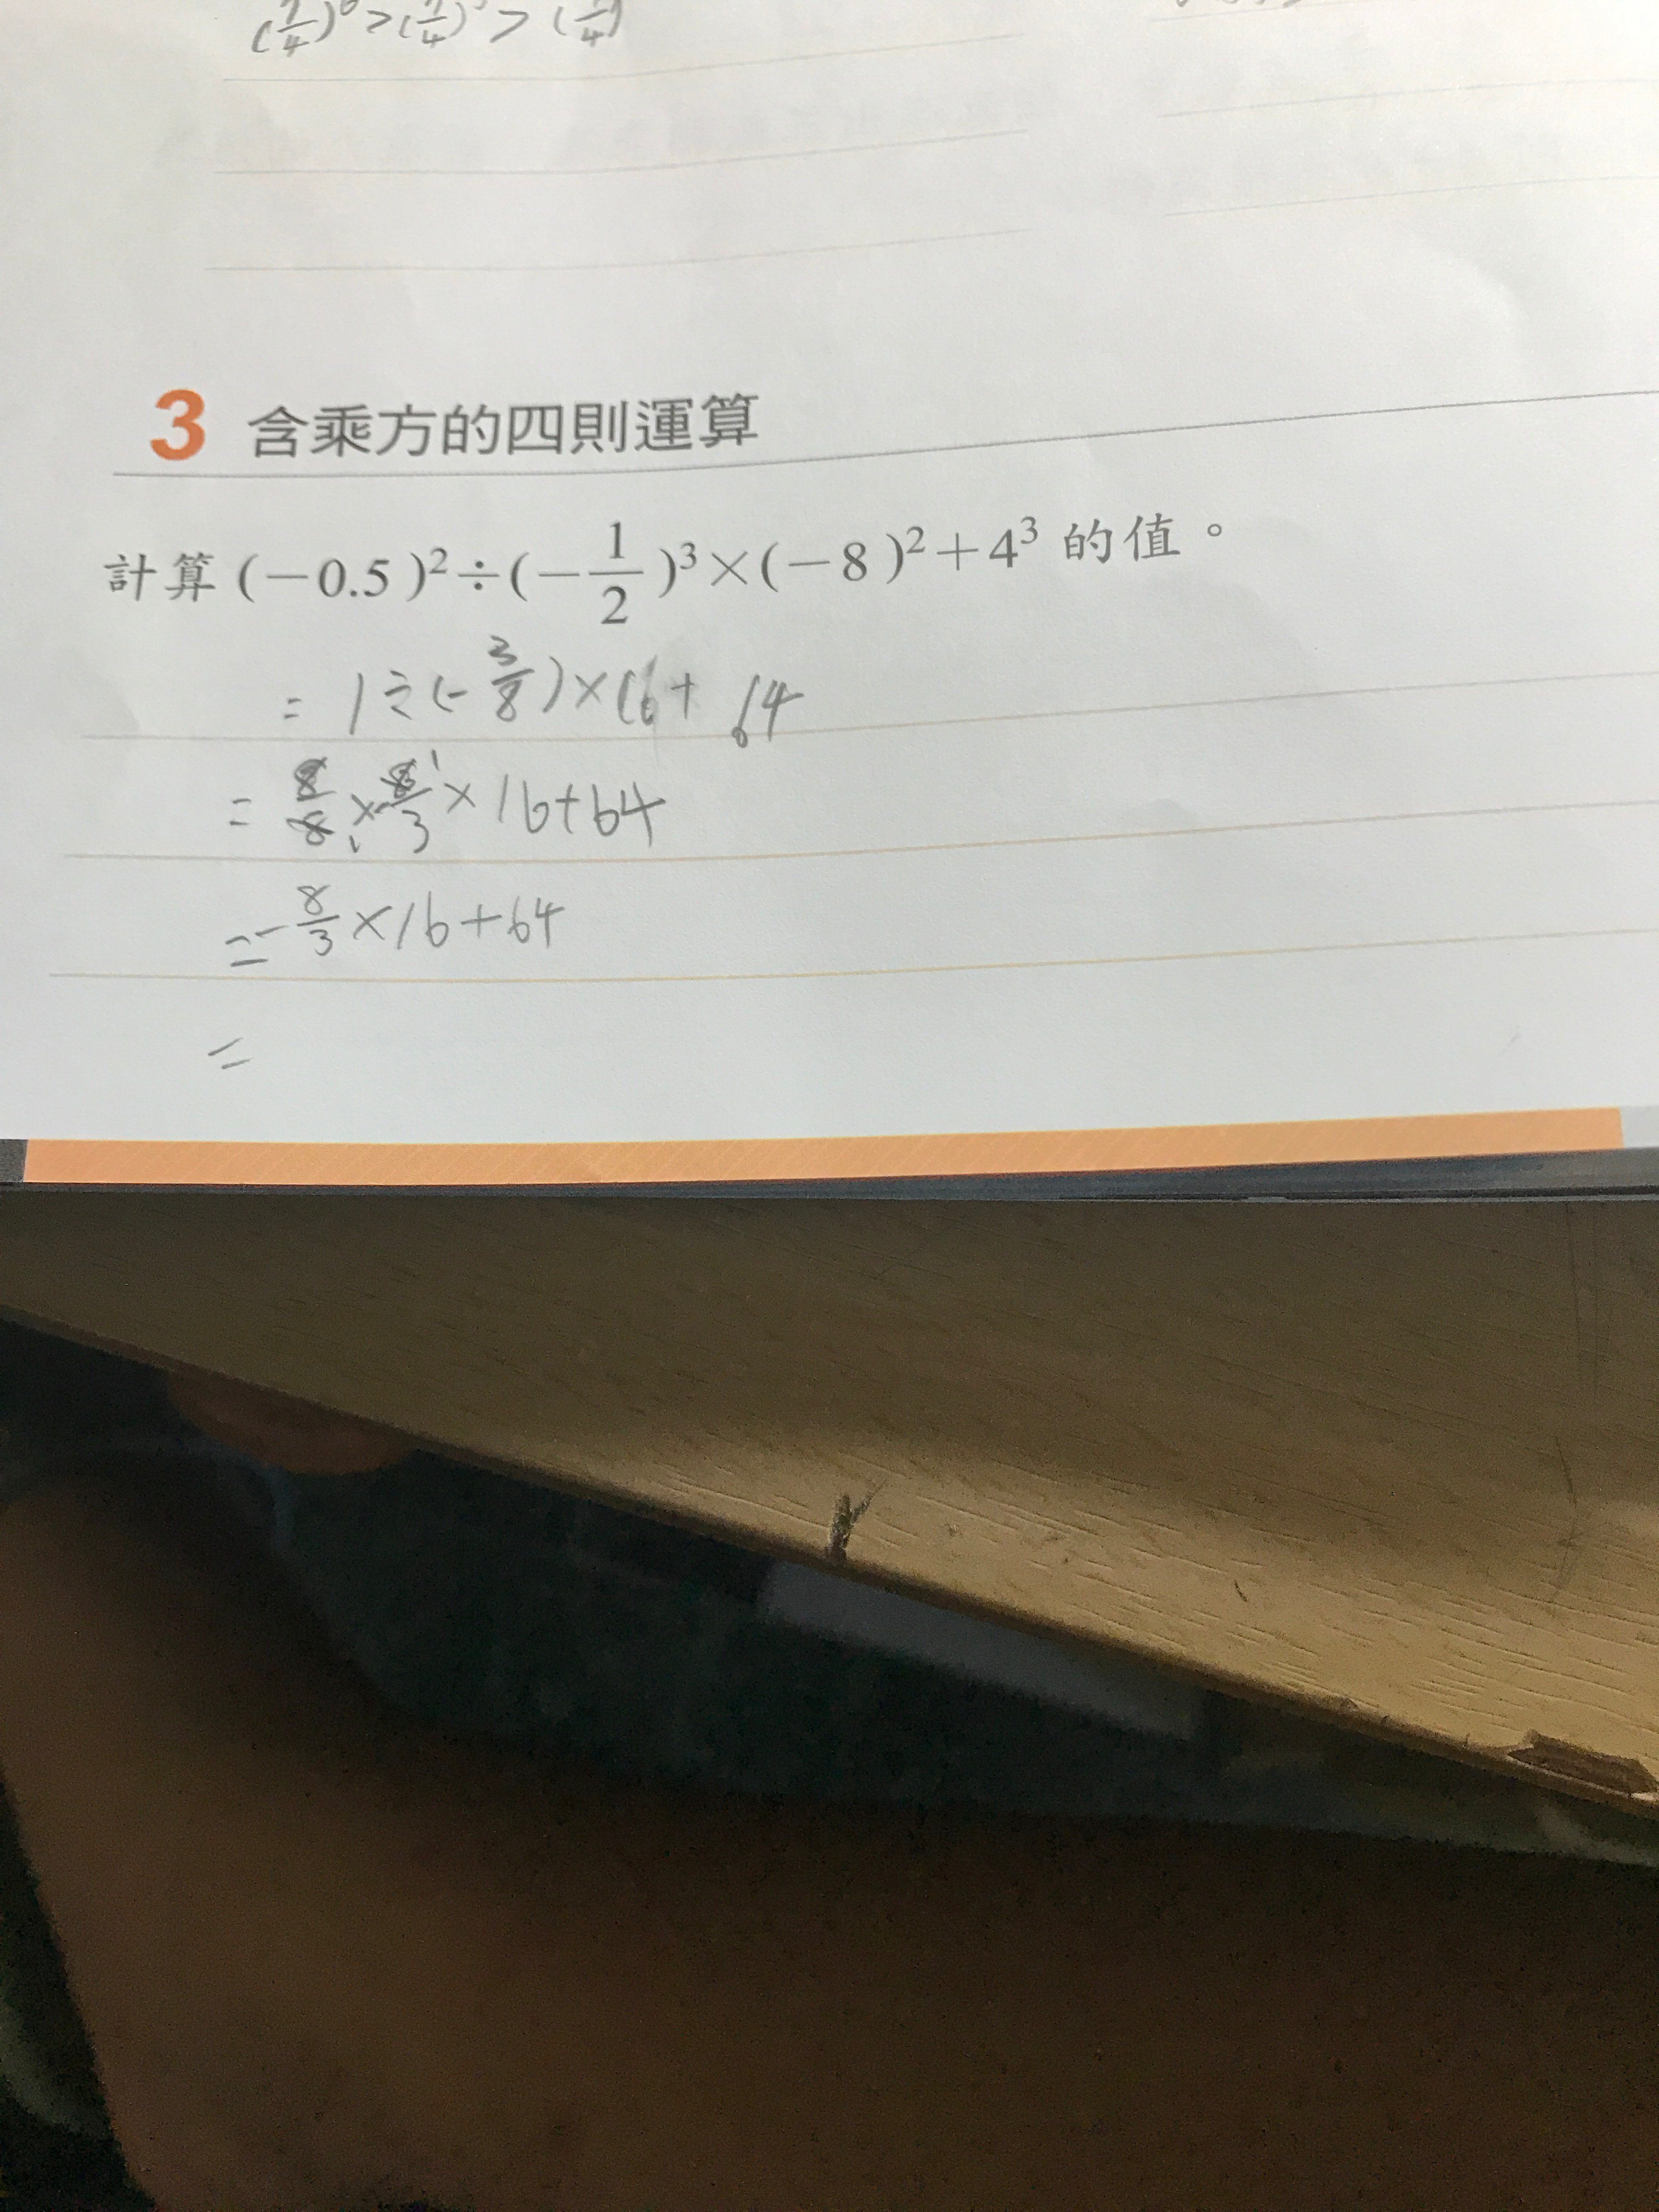 3 含乘方的四則運算
計算(-0.5)²÷(-1/2)³×(-8)²+4³的值。
= 1÷(-3/8)×16+64
= 8/8×-8/3×16+64
=-8/3×16+64
=